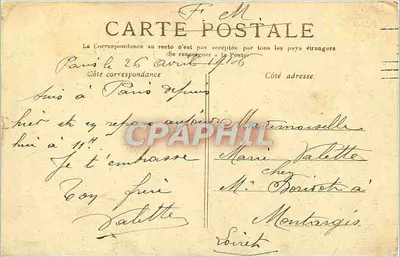 F M
CARTE POSTALE
La Correspondance au recto n'est pas acceptée par tous les pays étrangers
(Se renseigner à la Poste)
Paris le 26 avril 1916
Côté correspondance
Côté adresse.
suis à Paris depuis
hier et en repars aujourd
hui à 11H.
Je t'embrasse
Ton frère
Valette
Mademoiselle
Marie Valette
chez
Mr à
Montargis
Loiret
CPAPHIL